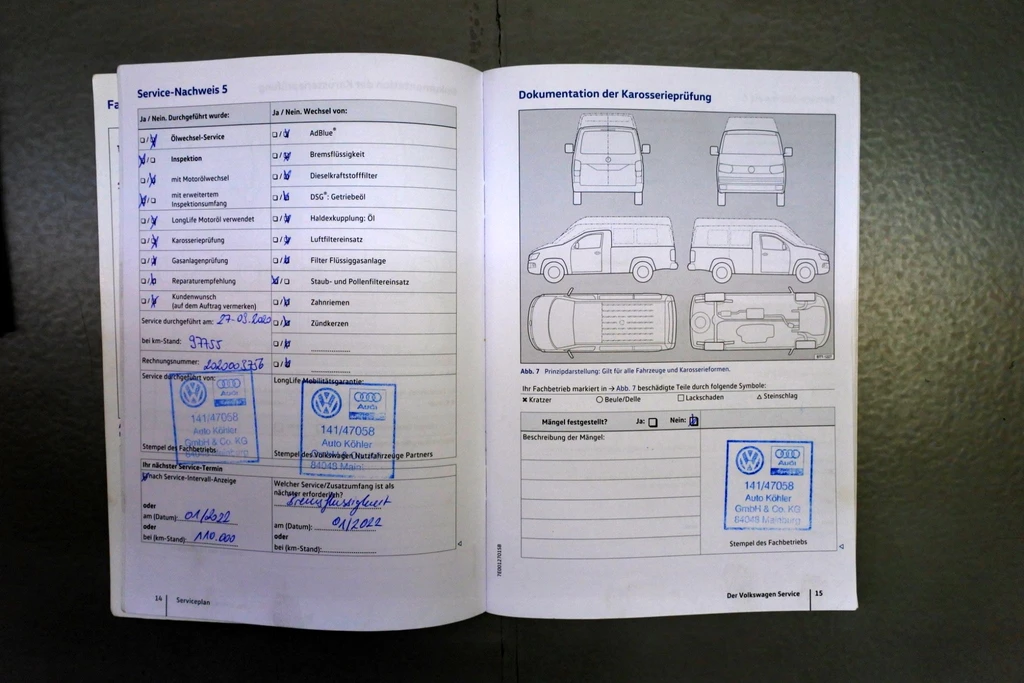 Fa
Service-Nachweis 5
Ja / Nein. Durchgeführt wurde:
Ja / Nein. Wechsel von:
Ölwechsel-Service
AdBlue®
Inspektion
Bremsflüssigkeit
mit Motorölwechsel
Dieselkraftstofffilter
mit erweitertem
Inspektionsumfang
DSG®: Getriebeöl
LongLife Motoröl verwendet
Haldexkupplung: Öl
Karosserieprüfung
Luftfiltereinsatz
Gasanlagenprüfung
Filter Flüssiggasanlage
Reparaturempfehlung
Staub- und Pollenfiltereinsatz
Kundenwunsch
(auf dem Auftrag vermerken)
Zahnriemen
Service durchgeführt am: 27-03.2020
Zündkerzen
bei km-Stand: 97755
Rechnungsnummer: 2020003756
Service durchgeführt von:
LongLife Mobilitätsgarantie:
Audi
141/47058
Auto Köhler
GmbH & Co. KG
Stempel des Fachbetriebs
Audi
141/47058
Auto Köhler
84048 Main
Stempel des Volkswagen Nutzfahrzeuge Partners
Ihr nächster Service-Termin
nach Service-Intervall-Anzeige
oder
am (Datum): 01/2022
oder
bei (km-Stand): 110.000
Welcher Service/Zusatzumfang ist als
nächster erforderlich?
Bremsflüssigkeit
am (Datum): 01/2022
oder
bei (km-Stand):
14
Serviceplan
Dokumentation der Karosserieprüfung
Abb. 7 Prinzipdarstellung: Gilt für alle Fahrzeuge und Karosserieformen.
Ihr Fachbetrieb markiert in → Abb. 7 beschädigte Teile durch folgende Symbole:
Kratzer
Beule/Delle
Lackschaden
Steinschlag
Mängel festgestellt? Ja: Nein:
Beschreibung der Mängel:
Audi
141/47058
Auto Köhler
GmbH & Co. KG
84048 Mainburg
Stempel des Fachbetriebs
Der Volkswagen Service
15